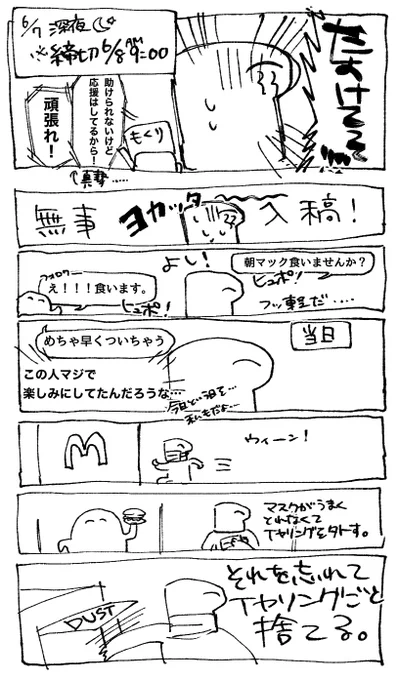 6/7 深夜
※締切 6/8 AM 9:00
たすけてる
助けられないけど
応援はしてるから！
頑張れ！
もくり
↑真摯……
無事
ヨカッタ
入稿！
よい！
朝マック食いませんか？
ヒュポ！
フッ軽だ・・・・
フォロワー
え！！！食います。
ヒュポ！
当日
めちゃ早くついちゃう
この人マジで
楽しみにしてたんだろうな…
今日という日を…
私もだよ…
M
ウィーン！
マスクがうまく
とれなくて
イヤリングを外す。
DUST
それを忘れて
イヤリングごと
捨てる。